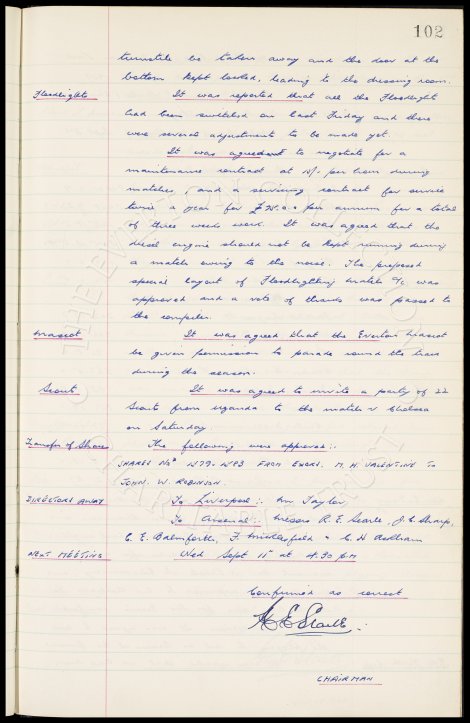 102
turnstile be taken away and the door at the
bottom kept locked, leading to the dressing room.
Floodlights It was reported that all the Floodlight
had been switched on last Friday and there
were several adjustments to be made yet.
It was agreed to negotiate for a
maintenance contract at per hour during
matches, and a servicing contract for service
twice a year for per annum for a total
of three weeks work. It was agreed that the
diesel engine should not be kept running during
a match owing to the noise. The proposed
special layout of Floodlighting match a/c was
approved and a vote of thanks was passed to
the compiler.
Mascot It was agreed that the Everton Mascot
be given permission to parade round the
during the season.
Scouts It was agreed to invite a party of 22
Scouts from Uganda to the match v Chelsea
on Saturday.
Transfer of Share The following were approved:-
SHARES Nos 1579. 1583 FROM EXORS. M. H. VALENTINE TO
JOHN. W. ROBINSON.
DIRECTORS AWAY To Liverpool:- Mr Taylor,
To Arsenal:- Messrs R. E. Searle, J. C. Sharp,
C. E. Balmforth, F. Micklesfield & C. H. Askham
NEXT MEETING Wed Sept 11th at 4.30 PM
Confirmed as correct
CHAIRMAN
THE EVERTON
CHARITABLE TRUST